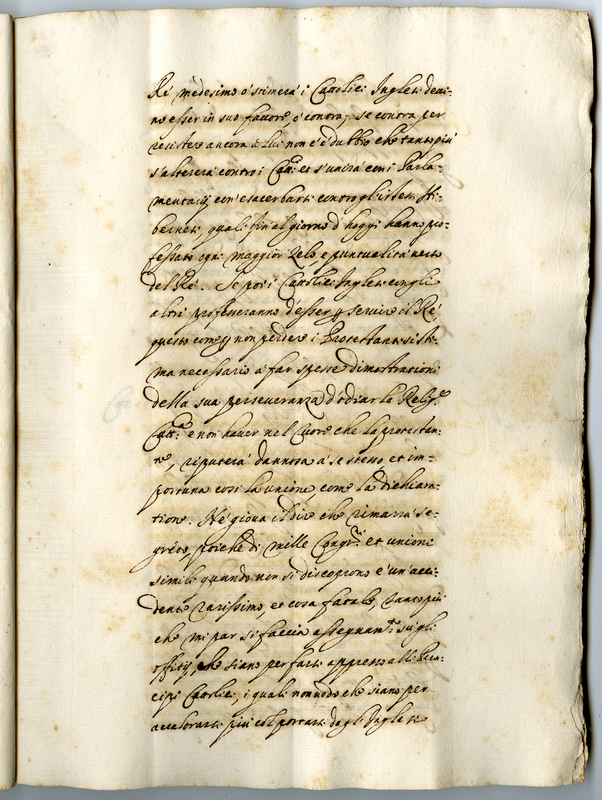 Rè medesimo ò stimerà i Cattolici Inglesi deui-
no esser in suo fauore, ò contra; se contra per
resistere ancora à lui non c'è dubbio che tanto più
s'altererà contro i Catt.ci et s'unirà con i Parla-
mentarij con esacerbarsi contro gl'istessi Hi-
bernesi, quali fin'al giorno d'hoggi hanno pro-
fessato ogni maggior Zelo e puntualità uerso
del Rè. Se poi i Cattolici Inglesi con gli
altri professeranno d'esser p seruire il Rè
questo come p non perdere i Protestanti si sti-
ma necessario à far spesse dimostrationi
della sua perseueranza d'odiar la Relig.e
Catt.ca e non hauer nel Cuore che la protestan-
te, riputerà dannosa à se stesso, et im-
portuna così la unione, come la dichiara-
tione. Nè gioua il dire che rimarrà se-
greto, poiche di mille Congr.e et unioni
simili quando non si discoprono è un'acci-
dente rarissimo, et cosa fatale, tanto più
che mi par si faccia assegnam.to sù gli
offitij, che siano per farsi appresso alli Prin-
cipi Cattolici, i quali non uedo che siano per
accalorarsi più col portarsi dagl'Inglesi